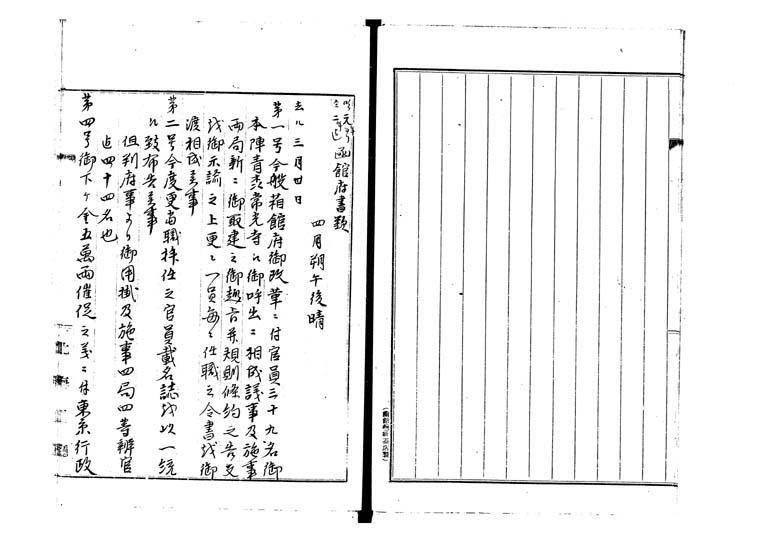 明元年
函館府書類
四月朔午後晴
去ル三月四日
第一号今般箱館府御改革ニ付官員三十九名御
本陣青森常光寺ヘ御呼出ニ相成議事及施事
両局新ニ御取建之御趣旨并規則條約之告文
ヲ以御示諭之上更ニ一員毎ニ任職之令書ヲ御
渡相成候事
第二号今度更ニ當職採任之官員載名誌ヲ以一統
ヘ致布告候事
但判府事ヨリ御用掛及施事四局四等辨官
迄四十四名也
第四号御下ケ金五萬両催促之義ニ付東京行政